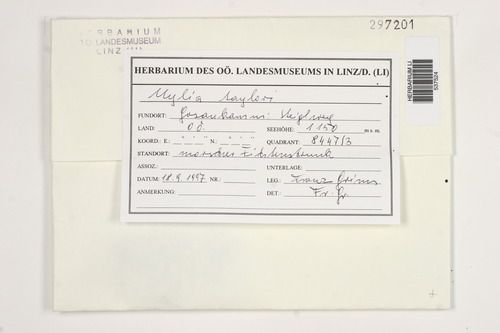 297201
HERBARIUM
OÖ LANDESMUSEUM
LINZ
HERBARIUM LI
537524
HERBARIUM DES OÖ. LANDESMUSEUMS IN LINZ/D. (LI)
Mylia taylori
FUNDORT: Gosaukammi
LAND: O.Ö. SEEHÖHE: 1150 m s. m.
KOORD. E.: ° ' " N.: ° ' " QUADRANT: 8447/3
STANDORT: morscher Fichtenstrunk
ASSOZ.: UNTERLAGE:
DATUM: 18.9.1997 LEG.: Franz Grims
ANMERKUNG: DET.: Fr. Gr.